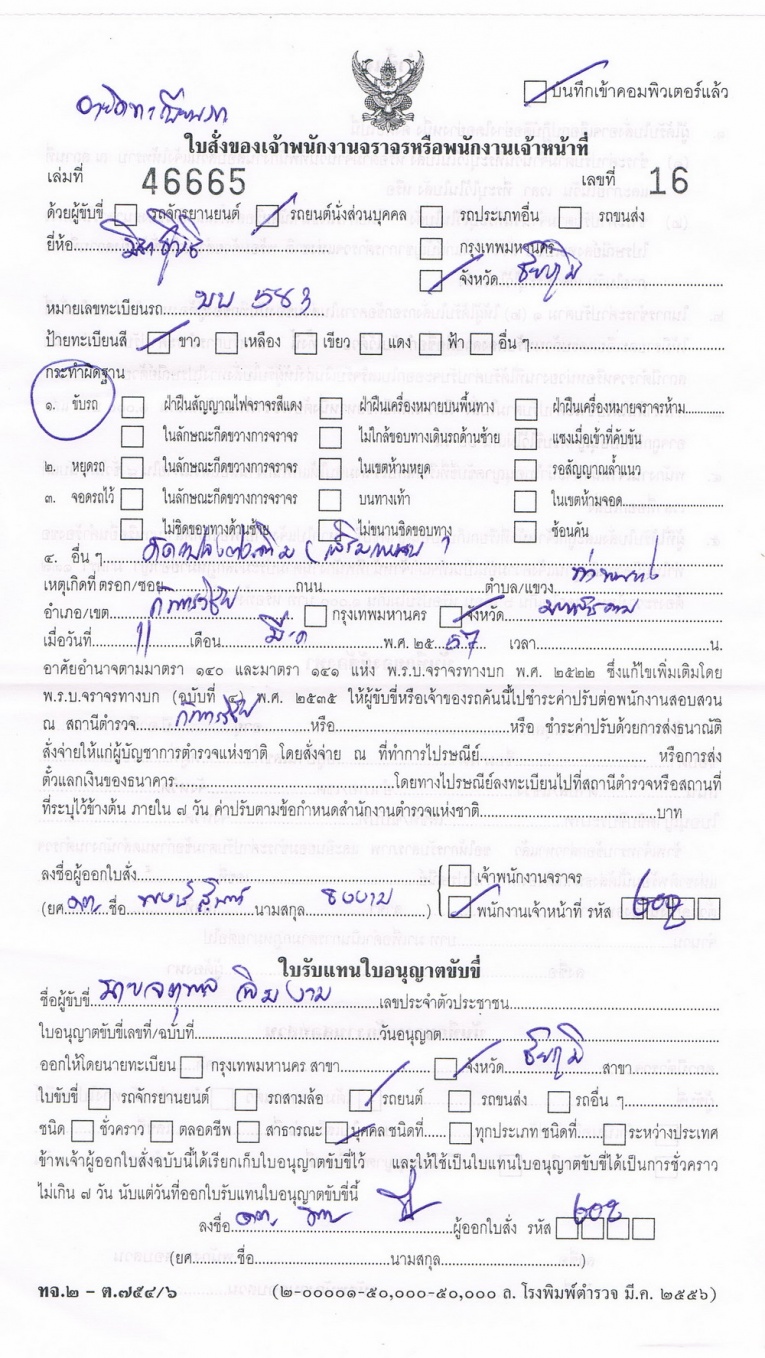 บันทึกเข้าคอมพิวเตอร์แล้ว
ใบสั่งของเจ้าพนักงานจราจรหรือพนักงานเจ้าหน้าที่
เล่มที่ 46665 เลขที่ 16
ด้วยผู้ขับขี่ รถจักรยานยนต์ รถยนต์นั่งส่วนบุคคล รถประเภทอื่น รถขนส่ง
ยี่ห้อ กรุงเทพมหานคร
จังหวัด ชัยภูมิ
หมายเลขทะเบียนรถ บบ 583
ป้ายทะเบียนสี ขาว เหลือง เขียว แดง ฟ้า อื่น ๆ
กระทำผิดฐาน
๑. ขับรถ ฝ่าฝืนสัญญาณไฟจราจรสีแดง ฝ่าฝืนเครื่องหมายบนพื้นทาง ฝ่าฝืนเครื่องหมายจราจรห้าม
ในลักษณะกีดขวางการจราจร ไม่ใกล้ขอบทางเดินรถด้านซ้าย แซงเมื่อเข้าที่คับขัน
๒. หยุดรถ ในลักษณะกีดขวางการจราจร ในเขตห้ามหยุด รอสัญญาณล้ำแนว
๓. จอดรถไว้ ในลักษณะกีดขวางการจราจร บนทางเท้า ในเขตห้ามจอด
ไม่ชิดขอบทางด้านซ้าย ไม่ขนานชิดขอบทาง ซ้อนคัน
๔. อื่น ๆ
เหตุเกิดที่ ตรอก/ซอย ถนน ตำบล/แขวง
อำเภอ/เขต กันทรวิชัย กรุงเทพมหานคร จังหวัด มหาสารคาม
เมื่อวันที่ 11 เดือน มี.ค พ.ศ. ๒๕ 57 เวลา น.
อาศัยอำนาจตามมาตรา ๑๔๐ และมาตรา ๑๔๑ แห่ง พ.ร.บ.จราจรทางบก พ.ศ. ๒๕๒๒ ซึ่งแก้ไขเพิ่มเติมโดย
พ.ร.บ.จราจรทางบก (ฉบับที่ ๔) พ.ศ. ๒๕๓๕ ให้ผู้ขับขี่หรือเจ้าของรถคันนี้ไปชำระค่าปรับต่อพนักงานสอบสวน
ณ สถานีตำรวจ กันทรวิชัย หรือ หรือ ชำระค่าปรับด้วยการส่งธนาณัติ
สั่งจ่ายให้แก่ผู้บัญชาการตำรวจแห่งชาติ โดยสั่งจ่าย ณ ที่ทำการไปรษณีย์ หรือการส่ง
ตั๋วแลกเงินของธนาคาร โดยทางไปรษณีย์ลงทะเบียนไปที่สถานีตำรวจหรือสถานที่
ที่ระบุไว้ข้างต้น ภายใน ๗ วัน ค่าปรับตามข้อกำหนดสำนักงานตำรวจแห่งชาติ บาท
ลงชื่อผู้ออกใบสั่ง เจ้าพนักงานจราจร
(ยศ ชื่อ นามสกุล ) พนักงานเจ้าหน้าที่ รหัส
ใบรับแทนใบอนุญาตขับขี่
ชื่อผู้ขับขี่ เลขประจำตัวประชาชน
ใบอนุญาตขับขี่เลขที่/ฉบับที่ วันอนุญาต
ออกให้โดยนายทะเบียน กรุงเทพมหานคร สาขา จังหวัด ชัยภูมิ สาขา
ใบขับขี่ รถจักรยานยนต์ รถสามล้อ รถยนต์ รถขนส่ง รถอื่น ๆ
ชนิด ชั่วคราว ตลอดชีพ สาธารณะ บุคคล ชนิดที่ ทุกประเภท ชนิดที่ ระหว่างประเทศ
ข้าพเจ้าผู้ออกใบสั่งฉบับนี้ได้เรียกเก็บใบอนุญาตขับขี่ไว้ และให้ใช้เป็นใบแทนใบอนุญาตขับขี่ได้เป็นการชั่วคราว
ไม่เกิน ๗ วัน นับแต่วันที่ออกใบรับแทนใบอนุญาตขับขี่นี้
ลงชื่อ ผู้ออกใบสั่ง รหัส
(ยศ ชื่อ นามสกุล )
ทจ.๒ - ต.๗๕๔/๖ (๒-๐๐๐๐๑-๕๐,๐๐๐-๕๐,๐๐๐ ล. โรงพิมพ์ตำรวจ มี.ค. ๒๕๕๖)